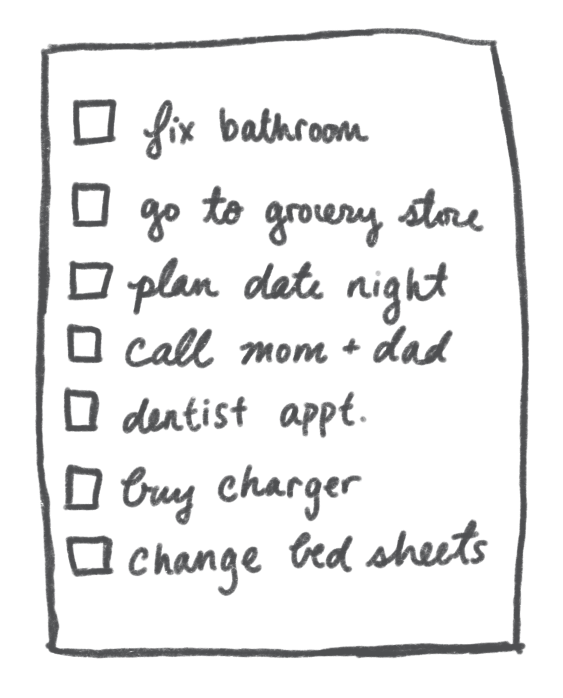 fix bathroom
go to grocery store
plan date night
call mom + dad
dentist appt.
buy charger
change bed sheets